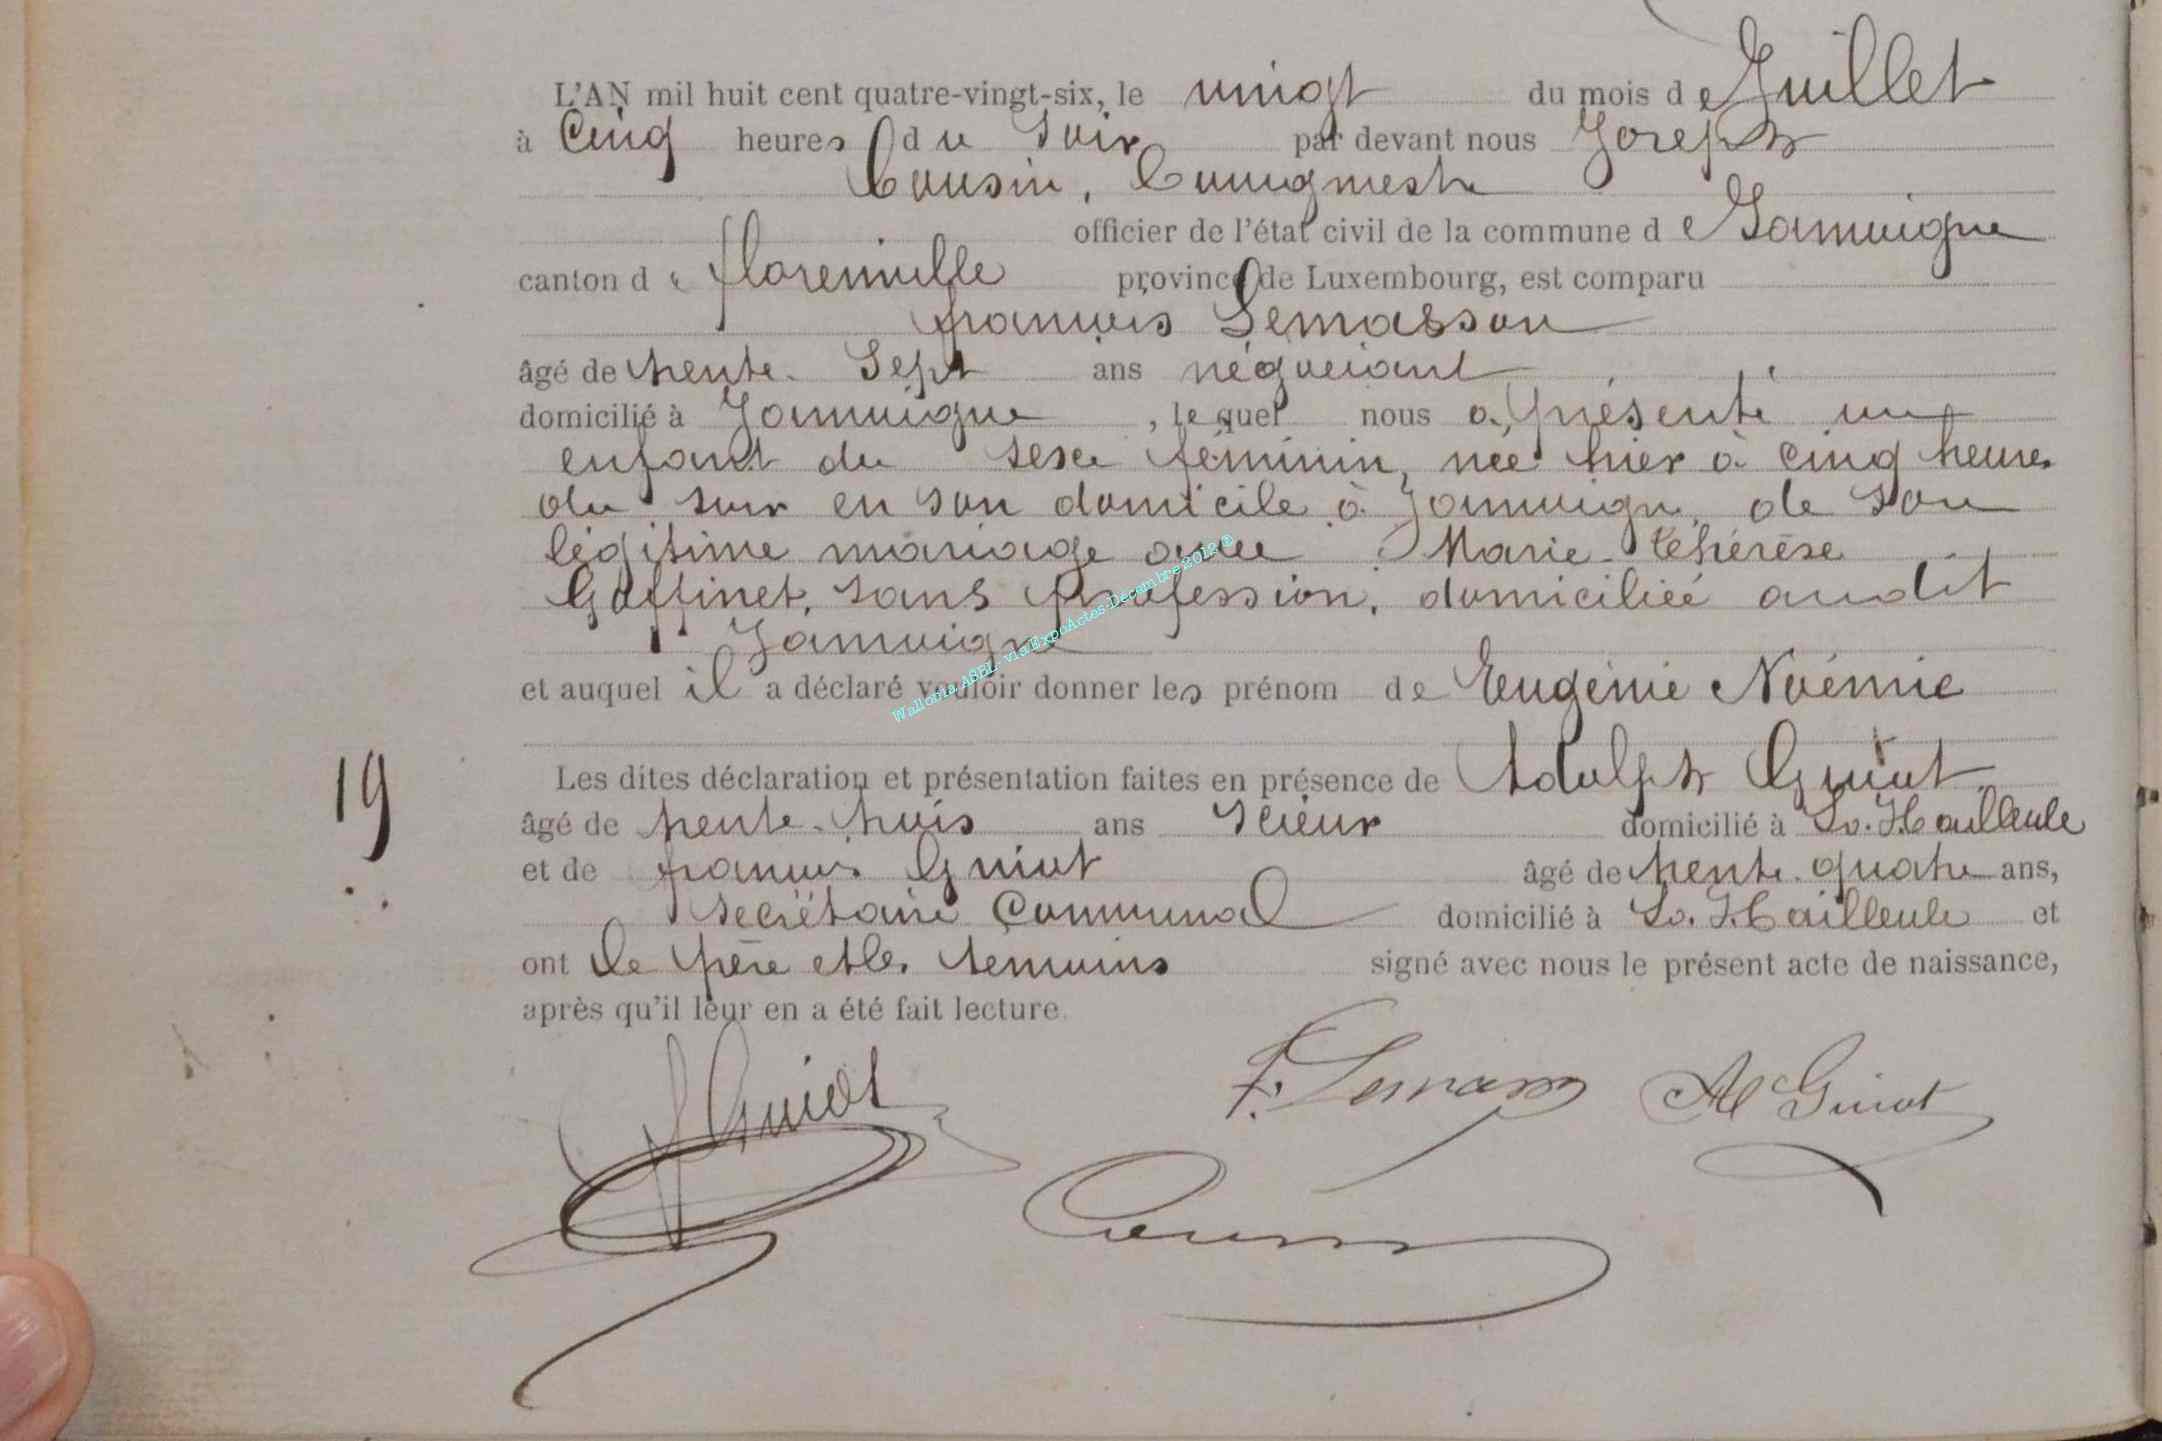 L'AN mil huit cent quatre-vingt-six, le vingt du mois de Juillet
à Cinq heures du Soir par devant nous Joseph
Cousin, Bourgmestre
officier de l'état civil de la commune de Jamoigne
canton de florenville province de Luxembourg, est comparu
françois Lemasson
âgé de trente-Sept ans négociant
domicilié à Jamoigne, lequel nous a présenté un
enfant du sexe féminin, née hier à cinq heures
du soir en son domicile à Jamoigne, de son
légitime mariage avec Marie-Thérèse
Goffinet, sans profession, domiciliée audit
Jamoigne
et auquel il a déclaré vouloir donner les prénom de Eugénie Noémie
19
Les dites déclaration et présentation faites en présence de Adolphe Guiot
âgé de trente-trois ans scieur domicilié à
et de françois Guiot âgé de trente-quatre ans,
secrétaire Communal domicilié à et
ont le père et les temoins signé avec nous le présent acte de naissance,
après qu'il leur en a été fait lecture.
Guiot F. Lemasson Ad Guiot
Cousin
Wallonia ASBL via ExpoActes Décembre 2012 ®